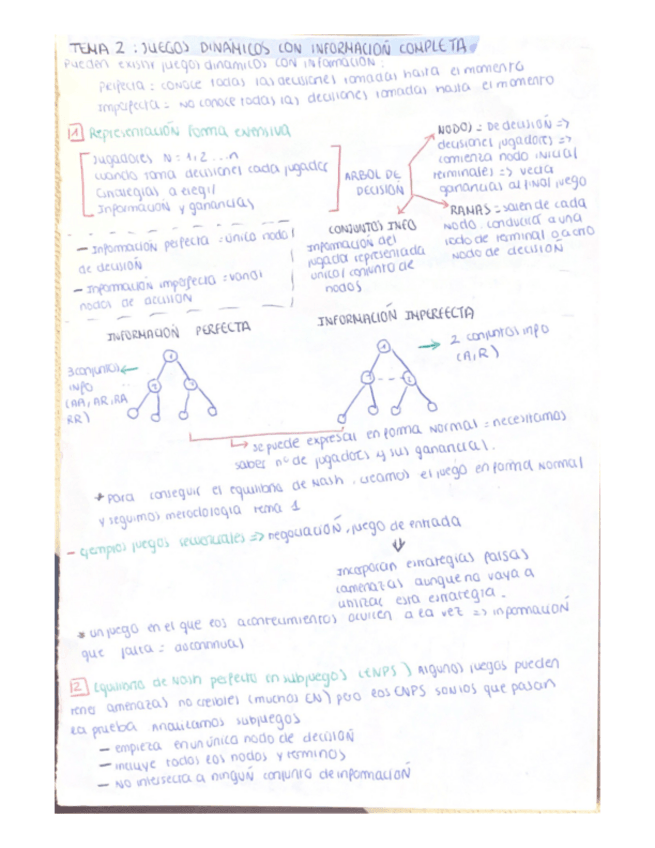 TEMA 2 : JUEGOS DINÁMICOS CON INFORMACIÓN COMPLETA
Pueden existir juegos dinámicos con información :
Perfecta : conoce todas las decisiones tomadas hasta el momento
Imperfecta = no conoce todas las decisiones tomadas hasta el momento
1 Representación forma extensiva
Jugadores N = 1, 2 ... n
cuando toma decisiones cada jugador
Estrategias a elegir
Información y ganancias
ARBOL DE
DECISIÓN
NODOS = De decisión =>
decisiones jugadores =>
comienza nodo inicial
Terminales => vector
ganancias al final juego
RAMAS = salen de cada
nodo. conducirá a una
nodo de terminal o a otro
nodo de decisión
CONJUNTOS INFO
Información del
jugador representada
único/conjunto de
nodos
— Información perfecta : único nodo
de decisión
— Información imperfecta : varios
nodos de decisión
INFORMACIÓN PERFECTA
3 conjuntos
INFO
(AA, AR, RA
RR)
1
2
2
INFORMACIÓN IMPERFECTA
1
2
2
2 conjuntos info
(A, R)
se puede expresar en forma normal = necesitamos
saber nº de jugadores y sus ganancias.
* Para conseguir el equilibrio de Nash, creamos el juego en forma normal
y seguimos metodología tema 1
- Ejemplos juegos secuenciales => negociación, juego de entrada
Incorporan estrategias falsas
(amenazas aunque no vaya a
utilizar esta estrategia.
* un juego en el que los acontecimientos ocurren a la vez => información
que falta =
2 Equilibrio de Nash perfecto en subjuegos (ENPS) Algunos juegos pueden
tener amenazas no creibles (muchos EN) pero los ENPS son los que pasan
la prueba Analizamos subjuegos
— empieza en un único nodo de decisión
— incluye todos los nodos y terminos
— No intersecta a ningún conjunto de información